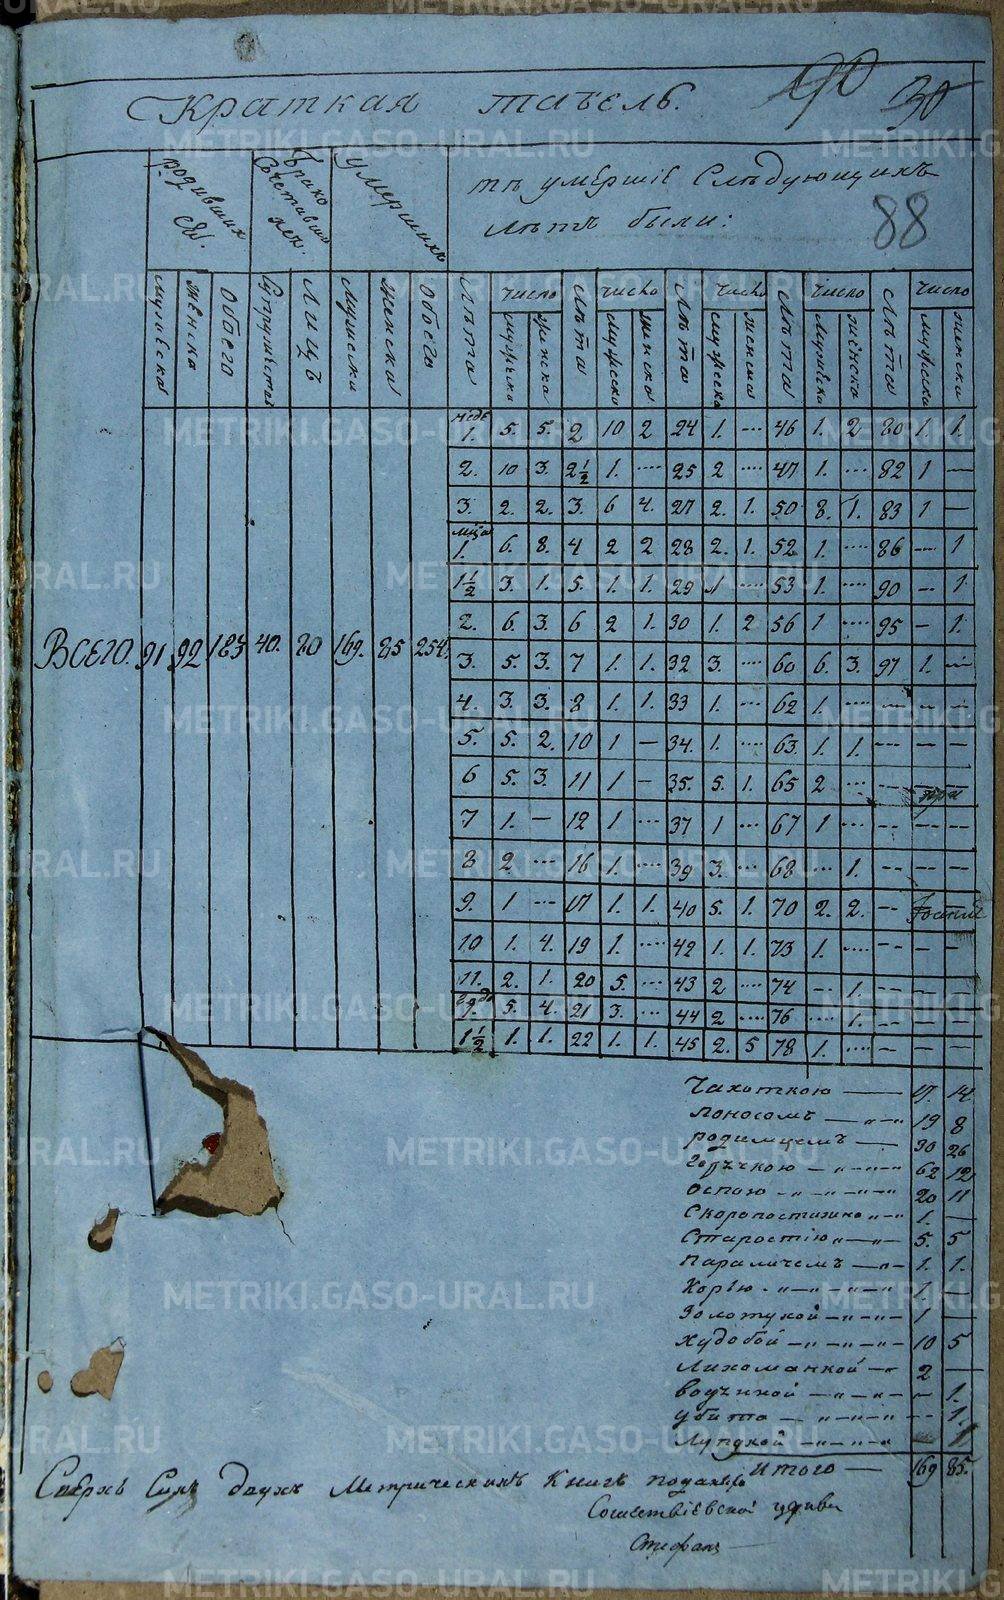 90
30
Краткая табель.
родившихся.
Бракосочетавшихся.
умершихъ
тѣ умершіе Слѣдующихъ
лѣтъ были:
88
мужеска женска обоего Супружествъ Лицъ Мужеска женска обоего Лѣта число Лѣта число Лѣта число Лѣта число Лѣта число
мужеска женска мужеска женска мужеска женска мужеска женска мужеска женска
1. 5. 5. 2 10 2 24 1. 46 1. 2 80 1. 1.
2. 10 3. 2½ 1. 25 2 47 1. 82 1 —
3. 2. 2. 3. 6 4. 27 2. 1. 50 8. 1. 83 1 —
1. 6. 8. 4 2 2 28 2. 1. 52 1. 86 — 1
1½ 3. 1. 5. 1. 1. 29 1 53 1. 90 — 1.
2. 6. 3. 6 2 1. 30 1. 2 56 1 95 — 1.
ВСЕГО. 91 92 183 40. 80 169. 85 254.
3. 5. 3. 7 1. 1. 32 3. 60 6. 3. 97 1. —
4. 3. 3. 8 1. 1. 33 1. 62 1. — — —
5. 5. 2. 10 1 — 34. 1. 63. 1. 1. — — —
6 5. 3. 11 1 — 35. 5. 1. 65 2 — — —
7 1. — 12 1 37 1 67 1 — — —
8 2 16 1. 39 3. 68 1. — — —
9. 1 17 1. 1. 40 5. 1. 70 2. 2. —
10 1. 4. 19 1. 42 1. 1. 73 1. — — —
11. 2. 1. 20 5. 43 2 74 — 1. — — —
5. 4. 21 3. 44 2 76 1. — — —
1½ 1. 1. 22 1. 1. 45 2. 5 78 1. — — —
Чахоткою — 17. 14.
поносомъ — 19 8
родимцемъ — 30 26
Горѣчкою — 62 12
оспою — 20 11
Скоропостижно — 1. —
Старостію — 5. 5
Параличемъ — 1. 1.
Корью — 1. —
Золотухой — 1 —
Худобой — 10 5
Лихоманкой — 2 —
водяной — — 1.
убито — — 1.
— 1
Итого — 169 85.
Сверхъ Сихъ двухъ Метрическихъ Книгъ
Сошествіевской церкви
Стефанъ
METRIKI.GASO-URAL.RU